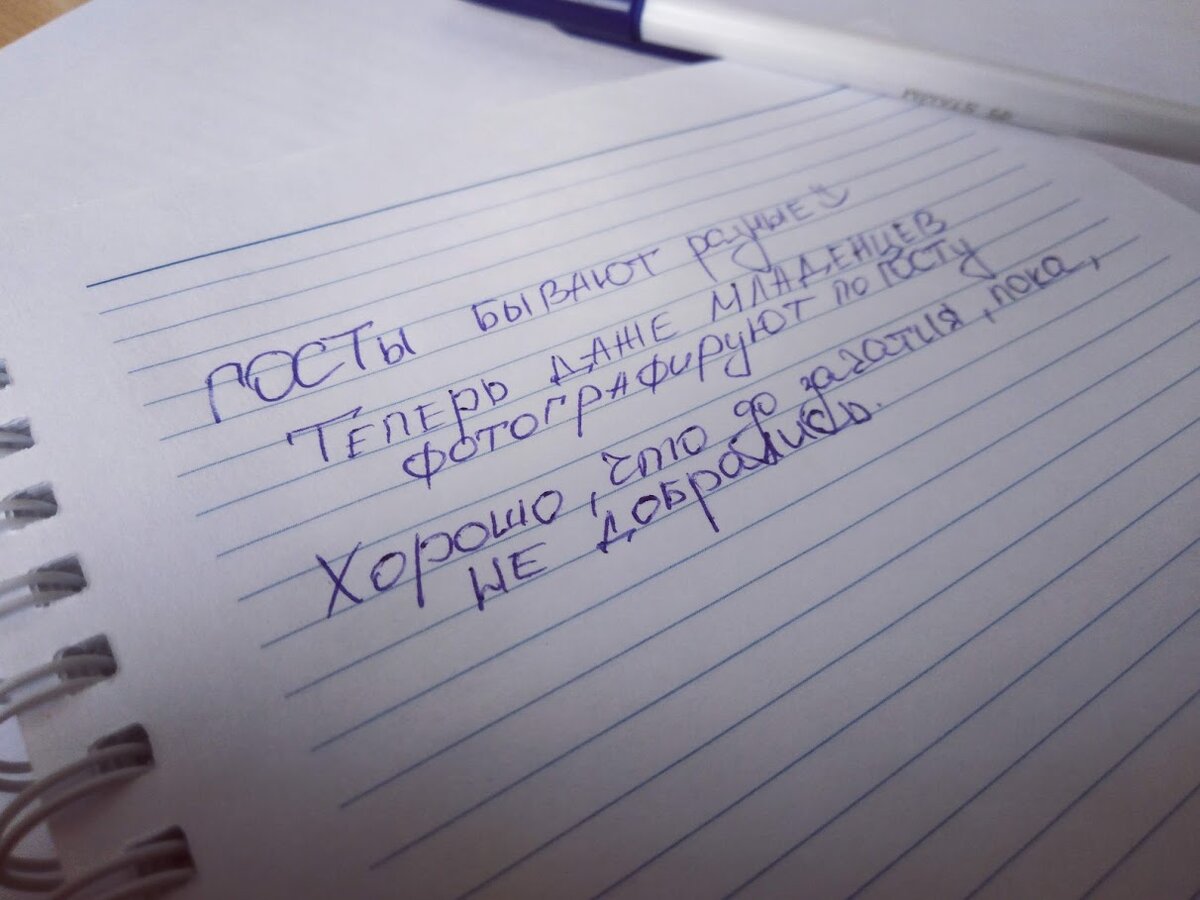 ГОСТы БЫВАЮТ разные
ТЕПЕРЬ ДАЖЕ МЛАДЕНЦЕВ
ФОТОГРАФИРУЮТ ПО ГОСТУ
Хорошо, что до зачатия, пока,
НЕ ДОБРАЛИСЬ.